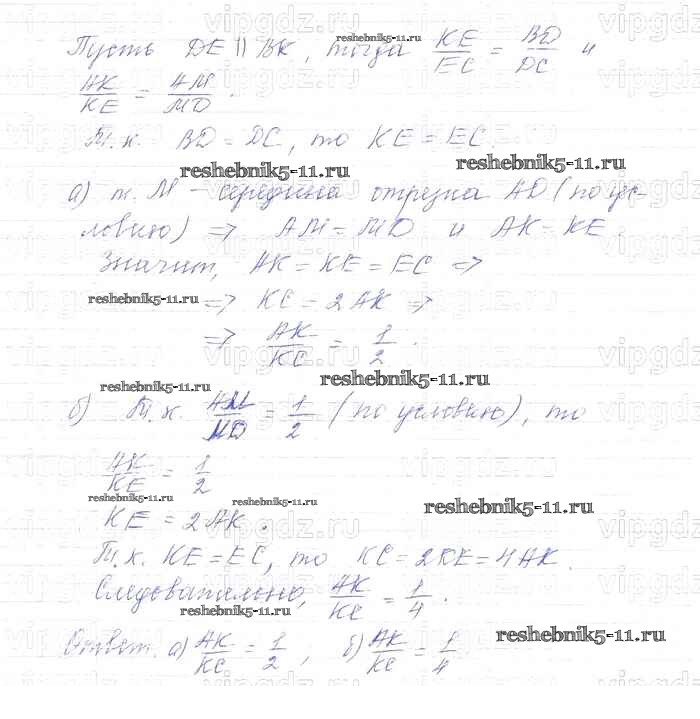 reshebnik5-11.ru
Пусть DE || BK, тогда KE/EC = BD/DC и
AK/KE = AM/MD.
Т.к. BD = DC, то KE = EC
reshebnik5-11.ru reshebnik5-11.ru
а) т. M - середина отрезка AD (по ус-
ловию) => AM = MD и AK = KE.
Значит, AK = KE = EC =>
reshebnik5-11.ru => KC = 2AK =>
=> AK/KC = 1/2.
reshebnik5-11.ru reshebnik5-11.ru
б) Т.к. AM/MD = 1/2 (по условию), то
AK/KE = 1/2
reshebnik5-11.ru reshebnik5-11.ru reshebnik5-11.ru
KE = 2AK.
Т.к. KE = EC, то KC = 2KE = 4AK.
Следовательно, AK/KC = 1/4.
reshebnik5-11.ru
Ответ. а) AK/KC = 1/2, б) AK/KC = 1/4
reshebnik5-11.ru
vipgdz.ru